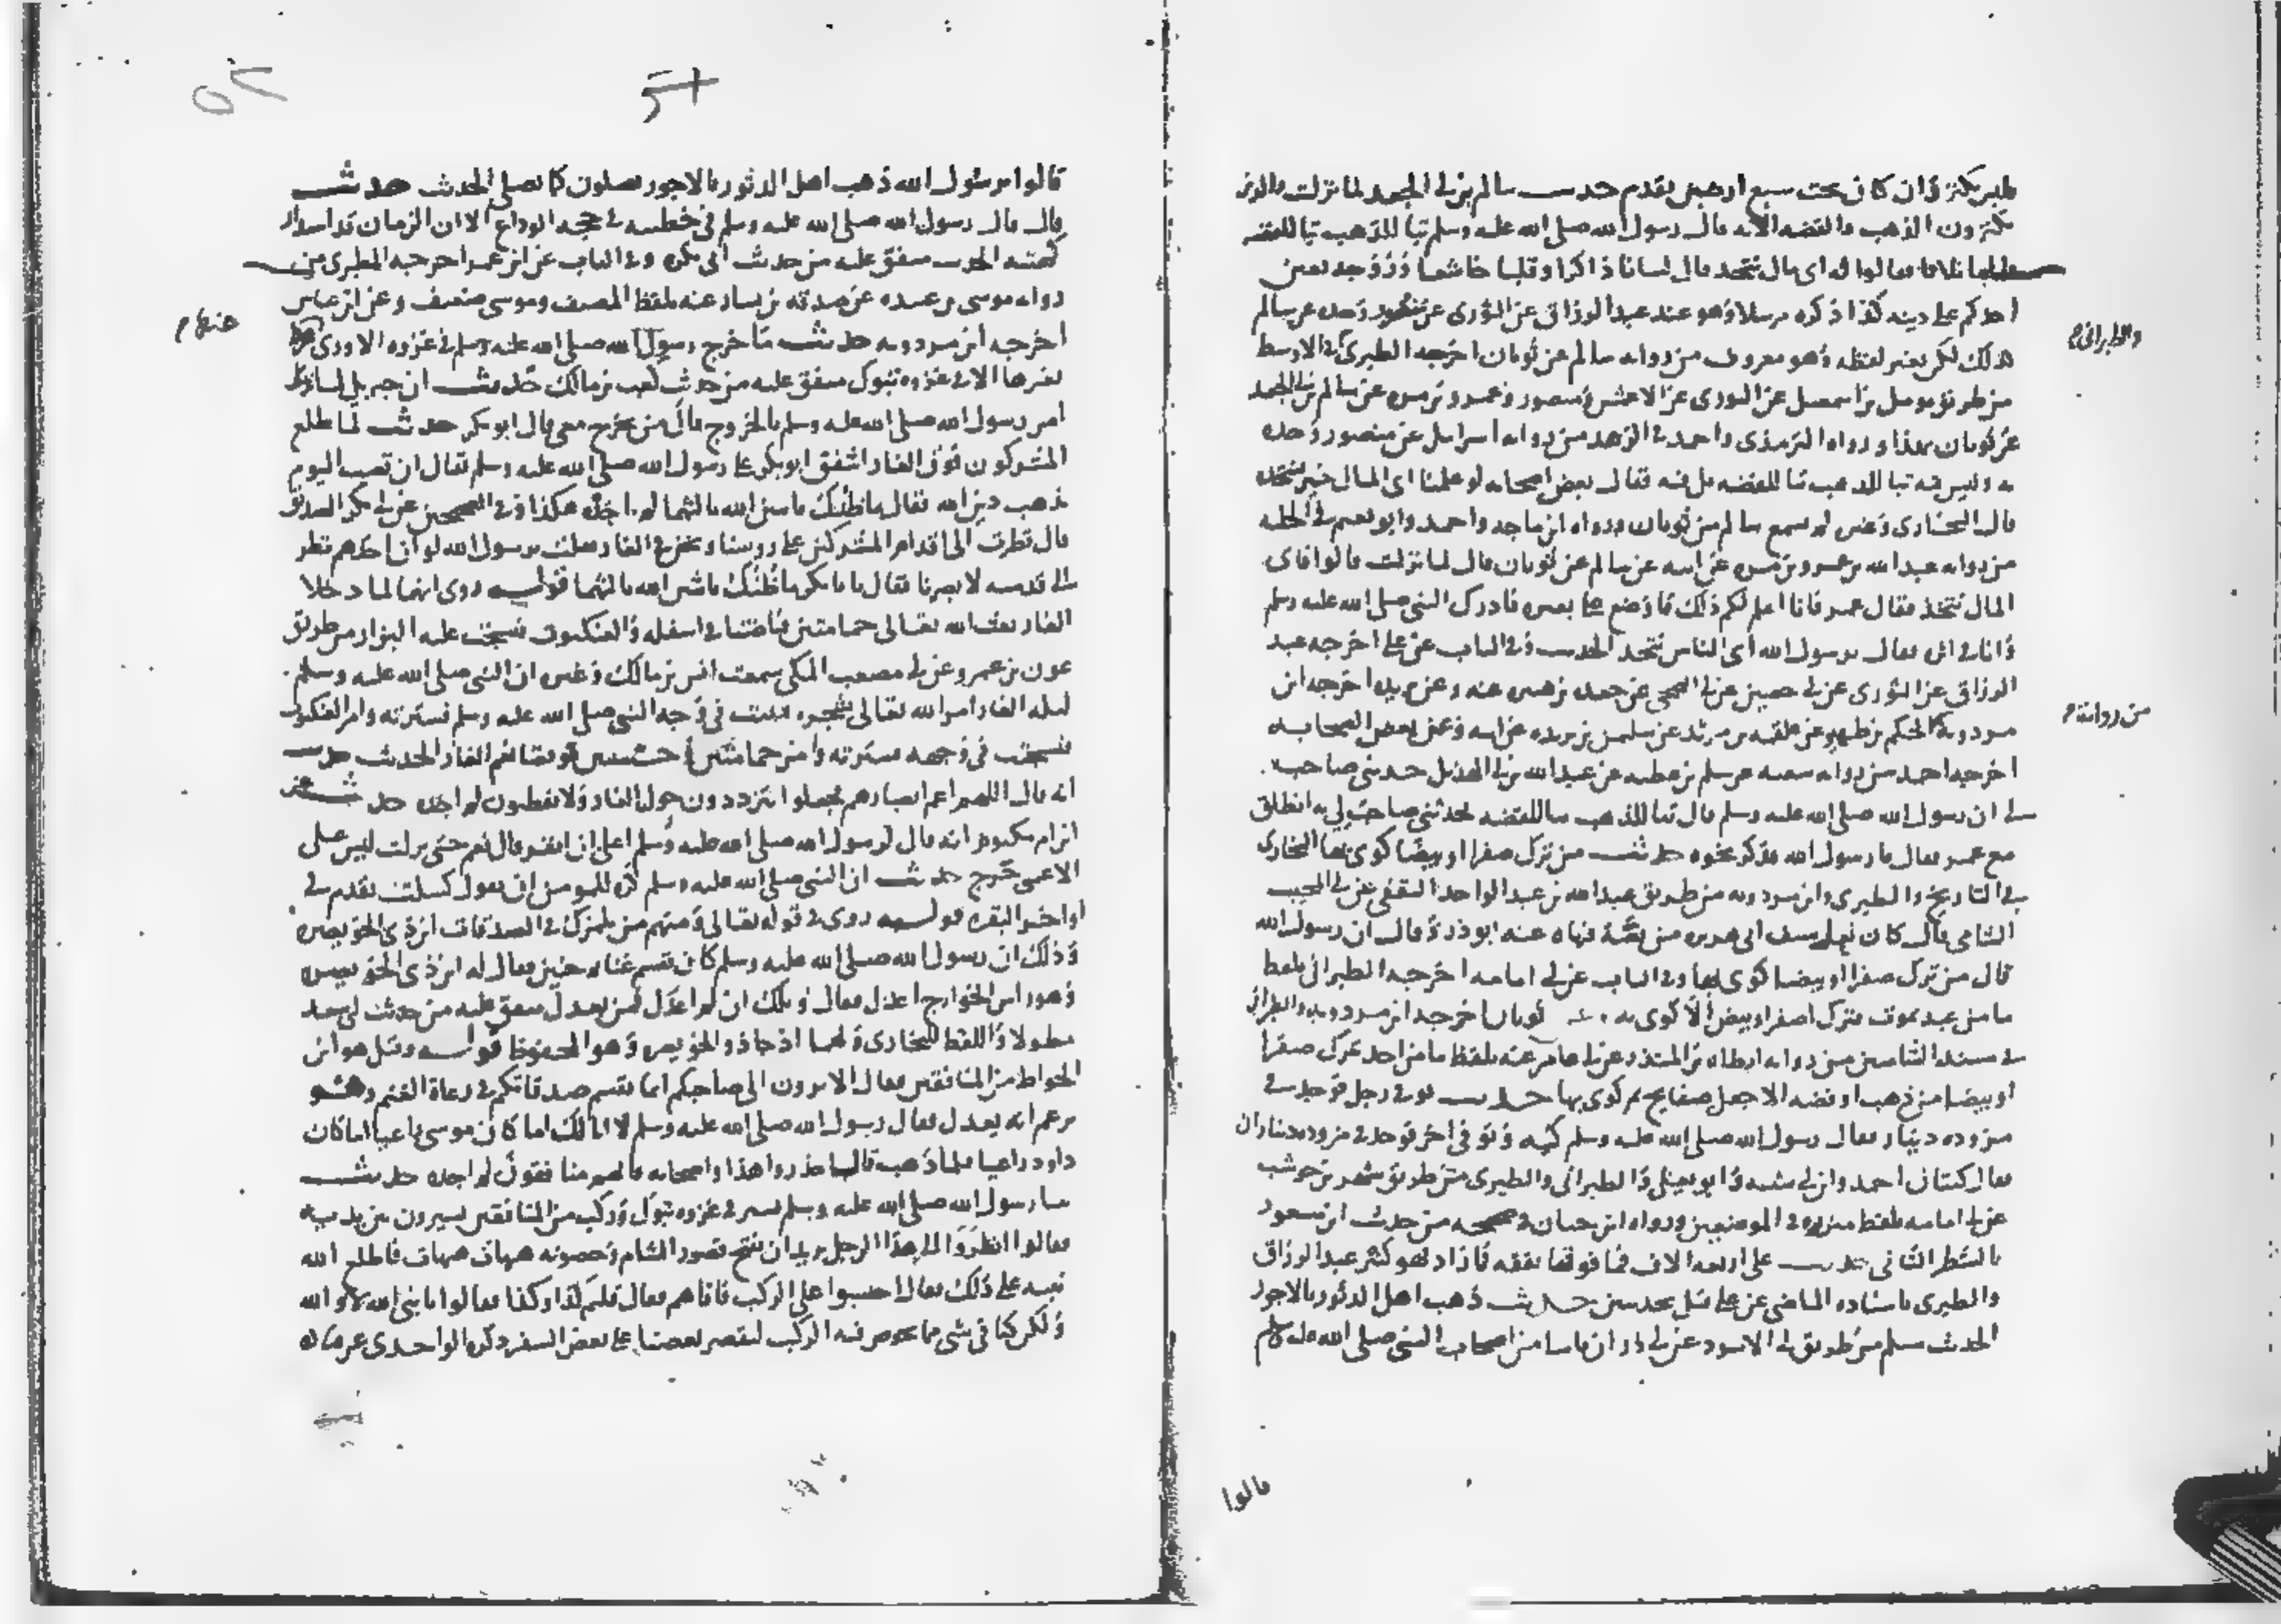 فليس بكنز وان كان تحت سبع ارضين تقدم حديث سالم بن ابى الجعد لما نزلت والذين
يكنزون الذهب والفضه الآيه قال رسول الله صلى الله عليه وسلم تبا للذهب تبا للفضه
قالها ثلاثا فقالوا له اى مال نتخذ قال لسانا ذاكرا وقلبا خاشعا وزوجه تعين
احدكم على دينه كذا ذكره مرسلا وهو عند عبد الرزاق عن الثورى عن منصور وحده عن سالم
كذلك لكن بغير لفظه وهو معروف من روايه سالم عن ثوبان اخرجه الطبرى فى الاوسط
والطبرانى
من طريق مومل بن اسمعيل عن الثورى عن الاعمش ومنصور وعمرو بن مره عن سالم بن ابى الجعد
عن ثوبان بهذا ورواه الترمذى واحمد فى الزهد من روايه اسرائيل عن منصور وحده
به وليس فيه تبا للذهب تبا للفضه بل فيه فقال بعض اصحابه لو علمنا اى المال خير نتخذه
قال البخارى وغيره لم يسمع سالم من ثوبان ورواه ابن ماجه واحمد وابو نعيم فى الحليه
من روايه عبد الله بن عمرو بن مره عن ابيه عن سالم عن ثوبان قال لما نزلت قالوا فاى
المال نتخذ فقال عمر فانا اعلم لكم ذلك فاوضع على بعيره فادرك النبى صلى الله عليه وسلم
وانا فى اثره فقال يرسول الله اى الناس نتخذ الحديث وفى الباب عن على اخرجه عبد
الرزاق عن الثورى عن ابى حصين عن ابى الضحى عن جعده بن هبيره عنه وعن بريده اخرجه ابن
من روايه
مردويه الحكم بن ظهير عن علقمه بن مرثد عن سليمن بن بريده عن ابيه وعن بعض الصحابه
اخرجه احمد من روايه شعبه عن سلم بن عطيه عن عبد الله بن ابى الهذيل حدثنى صاحب
لى ان رسول الله صلى الله عليه وسلم قال تبا للذهب تبا للفضه فحدثنى صاحبى به انطلق
مع عمر فقال يا رسول الله فذكر نحوه حديث من ترك صفرا او بيضا كوى بها البخارى
فى التاريخ والطبرى وابن مردويه من طريق عبد الله بن عبد الواحد الثقفى عن ابى المجيب
الشامى قال كان نعل سيف ابى هريره من فضه فنهاه عنه ابو ذر وقال ان رسول الله
قال من ترك صفرا او بيضا كوى بها وفى الباب عن ابى امامه اخرجه الطبرانى بلفظ
ما من عبد يموت فترك اصفر او ابيض الا كوى به وعن ثوبان اخرجه ابن مردويه والطبرانى
فى مسند الشاميين من روايه ارطاه بن المنذر عن ابى عامر عنه بلفظ ما من احد ترك صفرا
او بيضا من ذهب او فضه الا جعل صفايح ثم كوى بها حديث توفى رجل فوجد فى
مزوده دينار فقال رسول الله صلى الله عليه وسلم كيه وتوفى اخر فوجد فى مزوده ديناران
فقال كيتان احمد وابن ابى شيبه وابو يعلى والطبرانى والطبرى من طريق شهر بن حوشب
عن ابى امامه بلفظ مئزره فى الموضعين ورواه ابن حبان فى صحيحه من حديث ابن مسعود
بالشطر الثانى حديث على اربعه الاف فما فوقها نفقه فما زاد فهو كنز عبد الرزاق
والطبرى باسناده الماضى عن على قبل بحديثين حديث ذهب اهل الدثور بالاجور
الحديث مسلم من طريق ابى الاسود عن ابى ذر ان ناسا من اصحاب النبى صلى الله عليه وسلم
قالوا
قالوا يرسول الله ذهب اهل الدثور بالاجور يصلون كما نصلى الحديث حديث
قال قال رسول الله صلى الله عليه وسلم فى خطبته فى حجه الوداع الا ان الزمان قد استدار
كهيئته الحديث متفق عليه من حديث ابى بكره وفى الباب عن ابن عمر اخرجه الطبرى من
روايه موسى بن عبيده عن صدقه بن يسار عنه بلفظ المصنف وموسى ضعيف وعن ابن عباس
اخرجه ابن مردويه حديث ما خرج رسول الله صلى الله عليه وسلم فى غزوه الا ورى عنها
بغيرها الا فى غزوه تبوك متفق عليه من حديث كعب بن مالك حديث ان جبريل لما نزل
امر رسول الله صلى الله عليه وسلم بالخروج قال من يخرج معى قال ابو بكر حديث لما طلع
المشركون فوق الغار اشفق ابو بكر على رسول الله صلى الله عليه وسلم فقال ان تصب اليوم
ذهب دين الله فقال ما ظنك باثنين الله ثالثهما لم اجده هكذا وفى الصحيحين عن ابى بكر الصديق
قال نظرت الى اقدام المشركين على رووسنا ونحن فى الغار فقلت يرسول الله لو ان احدهم نظر
الى قدميه لابصرنا فقال يا با بكر ما ظنك باثنين الله ثالثهما قوله روى انهما لما دخلا
الغار بعث الله تعالى حمامتين فباضتا فى اسفله والعنكبوت نسجت عليه البزار من طريق
عون بن عمرو عن ابى مصعب المكى سمعت انس بن مالك وغيره ان النبى صلى الله عليه وسلم
ليله الغار امر الله تعالى شجره فنبتت فى وجه النبى صلى الله عليه وسلم فسترته وامر العنكبوت
فنسجت فى وجهه فسترته وامر حمامتين وحشيتين فوقفتا بفم الغار الحديث حديث
انه قال اللهم اعم ابصارهم فجعلوا يترددون حول الغار ولا يفطنون لم اجده حديث عن
ابن ام مكتوم انه قال لرسول الله صلى الله عليه وسلم اعلى ان انفر قال نعم حتى نزلت ليس على
الاعمى حرج حديث ان النبى صلى الله عليه وسلم كره للمومن ان يقول كسلت تقدم فى
اواخر البقره قوله روى فى قوله تعالى ومنهم من يلمزك فى الصدقات ابن ذى الخويصره
وذلك ان رسول الله صلى الله عليه وسلم كان يقسم غنايم حنين فقال له ابن ذى الخويصره
وهو راس الخوارج اعدل فقال ويلك ان لم اعدل فمن يعدل متفق عليه من حديث ابى سعيد
مطولا واللفظ للبخارى ولهما اذ جاء ذو الخويصره وهو المحفوظ قوله وقيل هو ابن
الجواظ من المنافقين فقال الا ترون الى صاحبكم انما يقسم صدقاتكم فى رعاة الغنم وهو
يزعم انه يعدل فقال رسول الله صلى الله عليه وسلم لا ابا لك اما كان موسى راعيا اما كان
داود راعيا فلما ذهب قال احذروا هذا واصحابه فانهم منافقون لم اجده حديث
بينا رسول الله صلى الله عليه وسلم يسير فى غزوه تبوك وركب من المنافقين يسيرون بين يديه
فقالوا انظروا الى هذا الرجل يريد ان يفتح قصور الشام وحصونه هيهات هيهات فاطلع الله
نبيه على ذلك فقال احبسوا على الركب فاتاهم فقال قلتم كذا وكذا فقالوا يا نبى الله لا والله
ولكن كنا فى شى مما يخوض فيه الركب ليقصر بعضنا على بعض السفر ذكره الواحدى عن قتاده